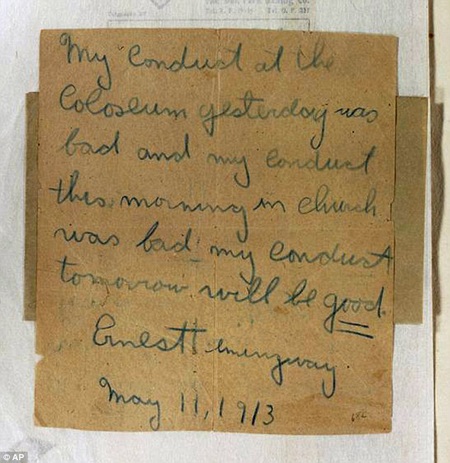 My conduct at the
Coloseum yesterday was
bad and my conduct
this morning in church
was bad my conduct
tomorrow will be good.
Ernest Hemingway
May 11, 1913
© AP